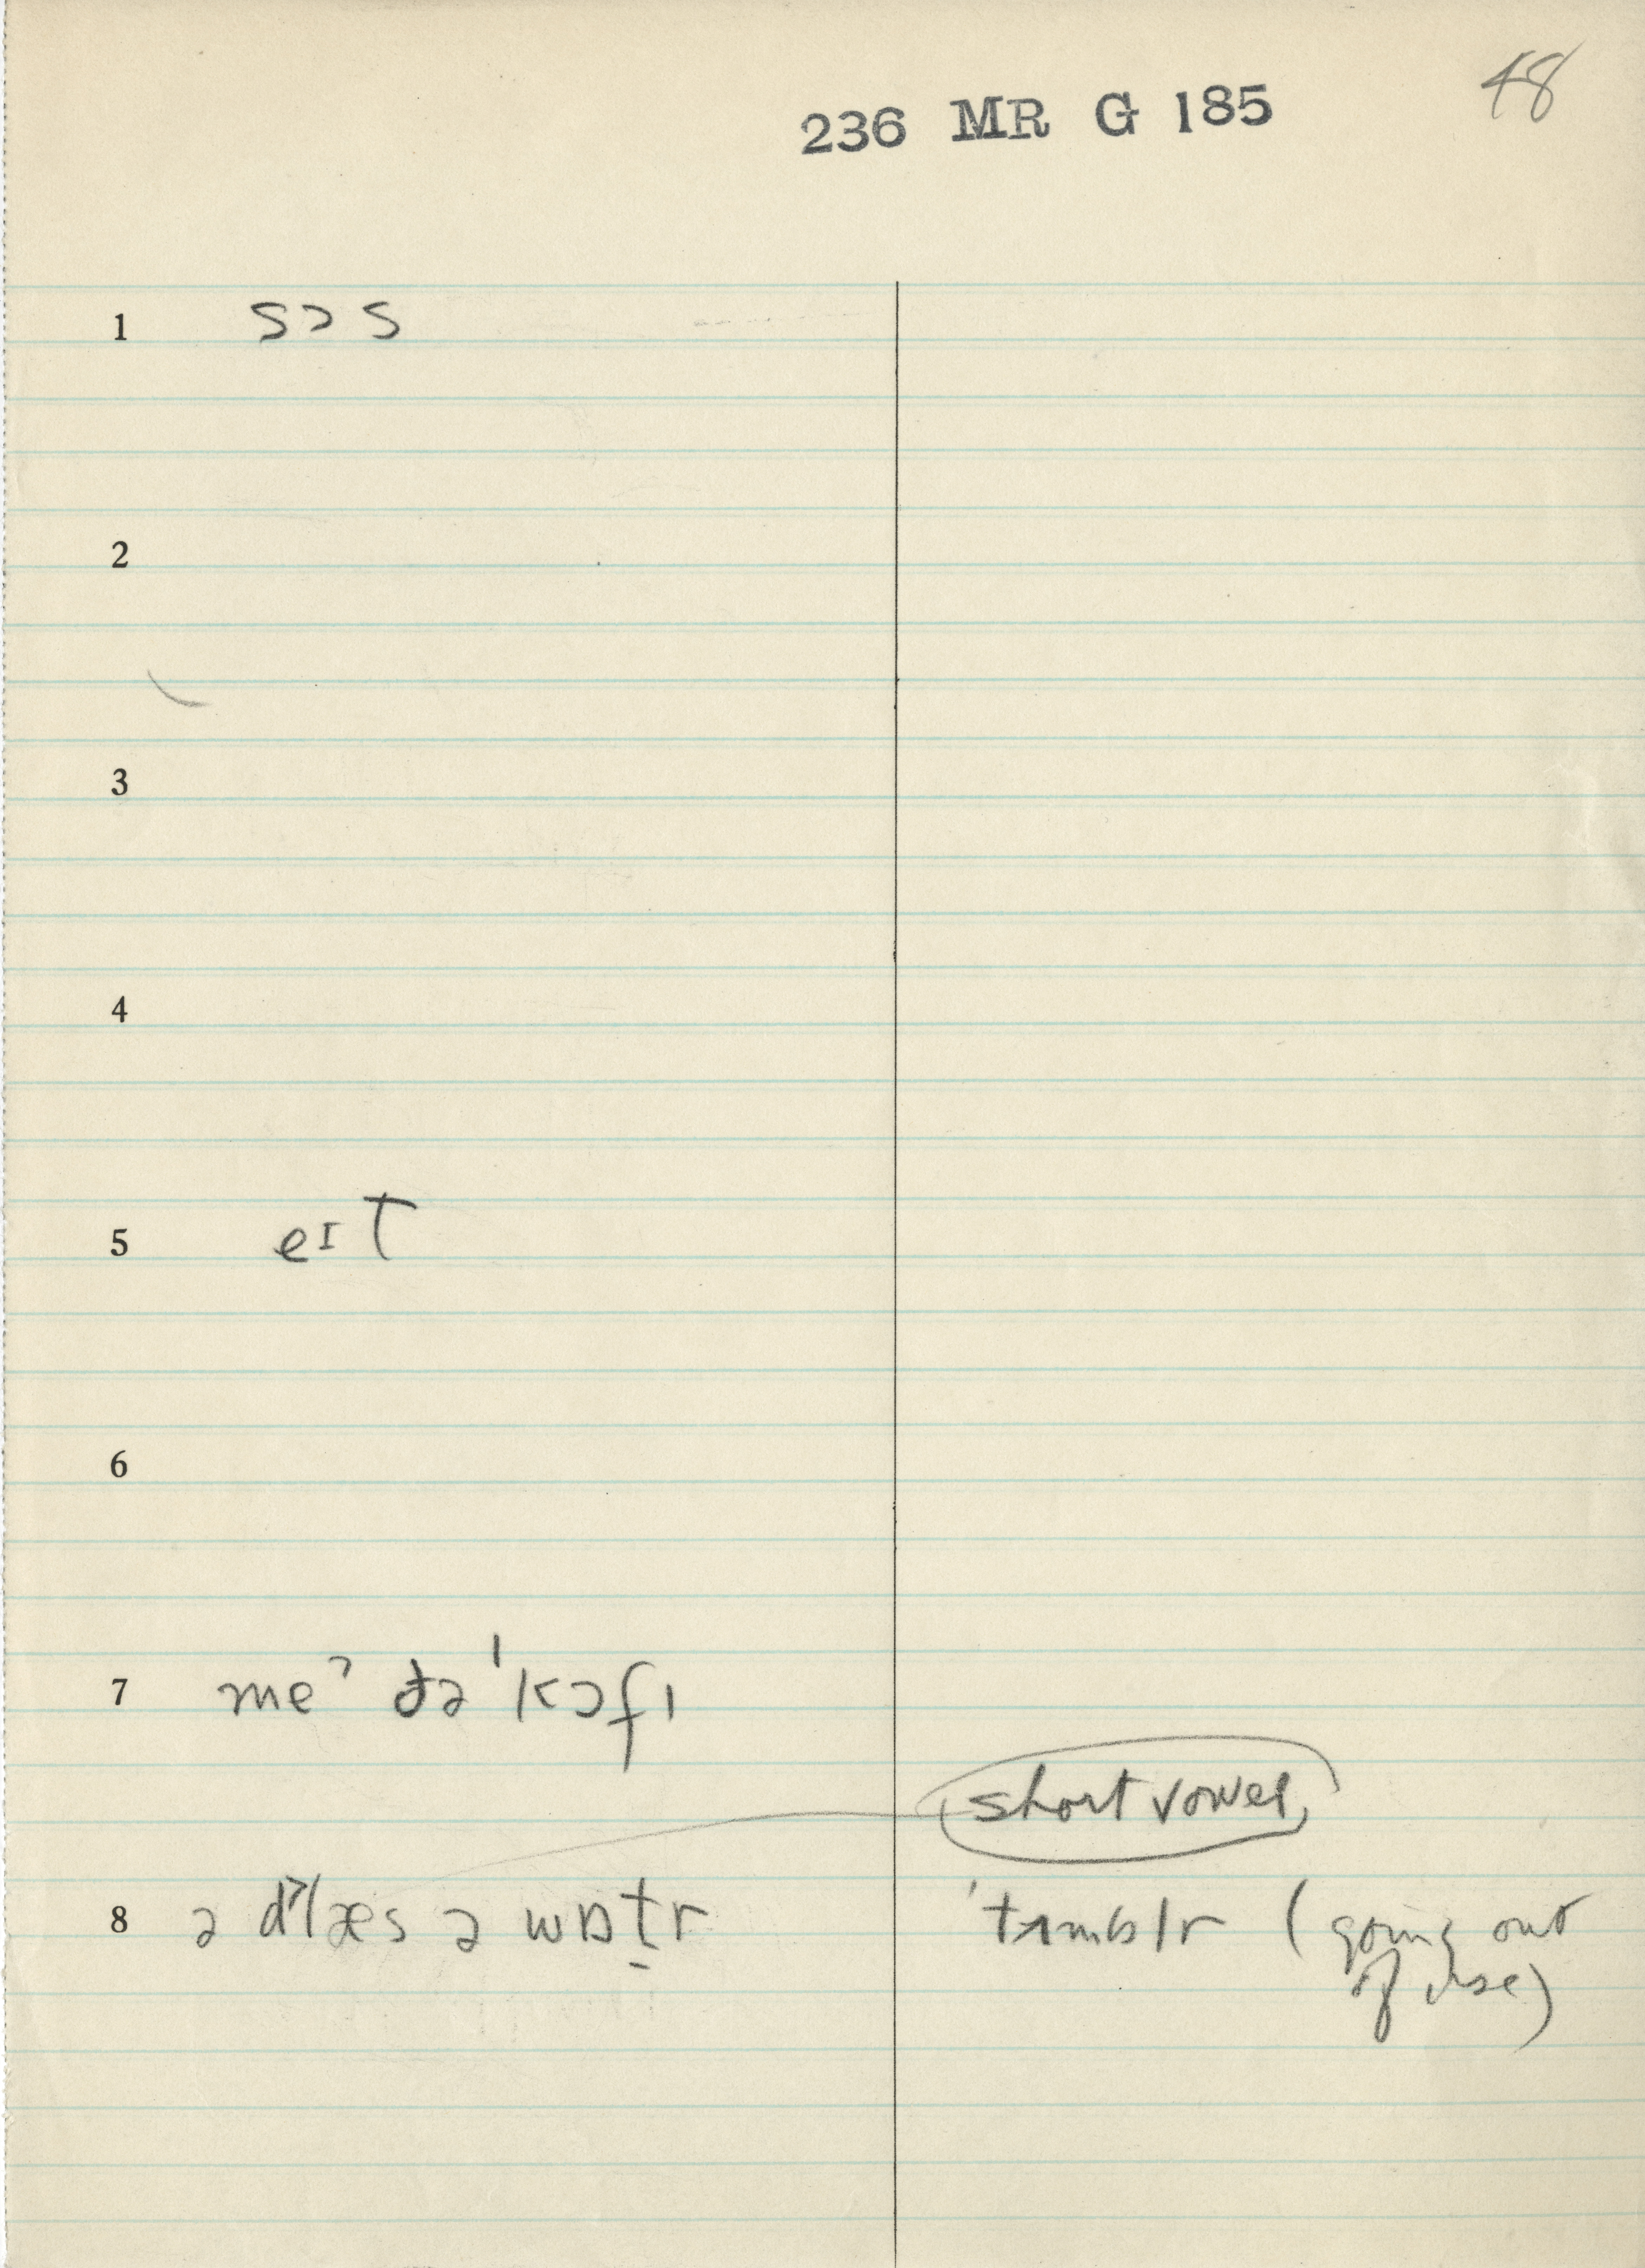 48
236 MR G 185
1 sɔs
2
3
4
5 eɪt
6
7 meˀ ðə ˈkɔfɪ
short vowel
8 ə dˀlæs ə wɒt̬r ˈtʌmblr (going out
of use)